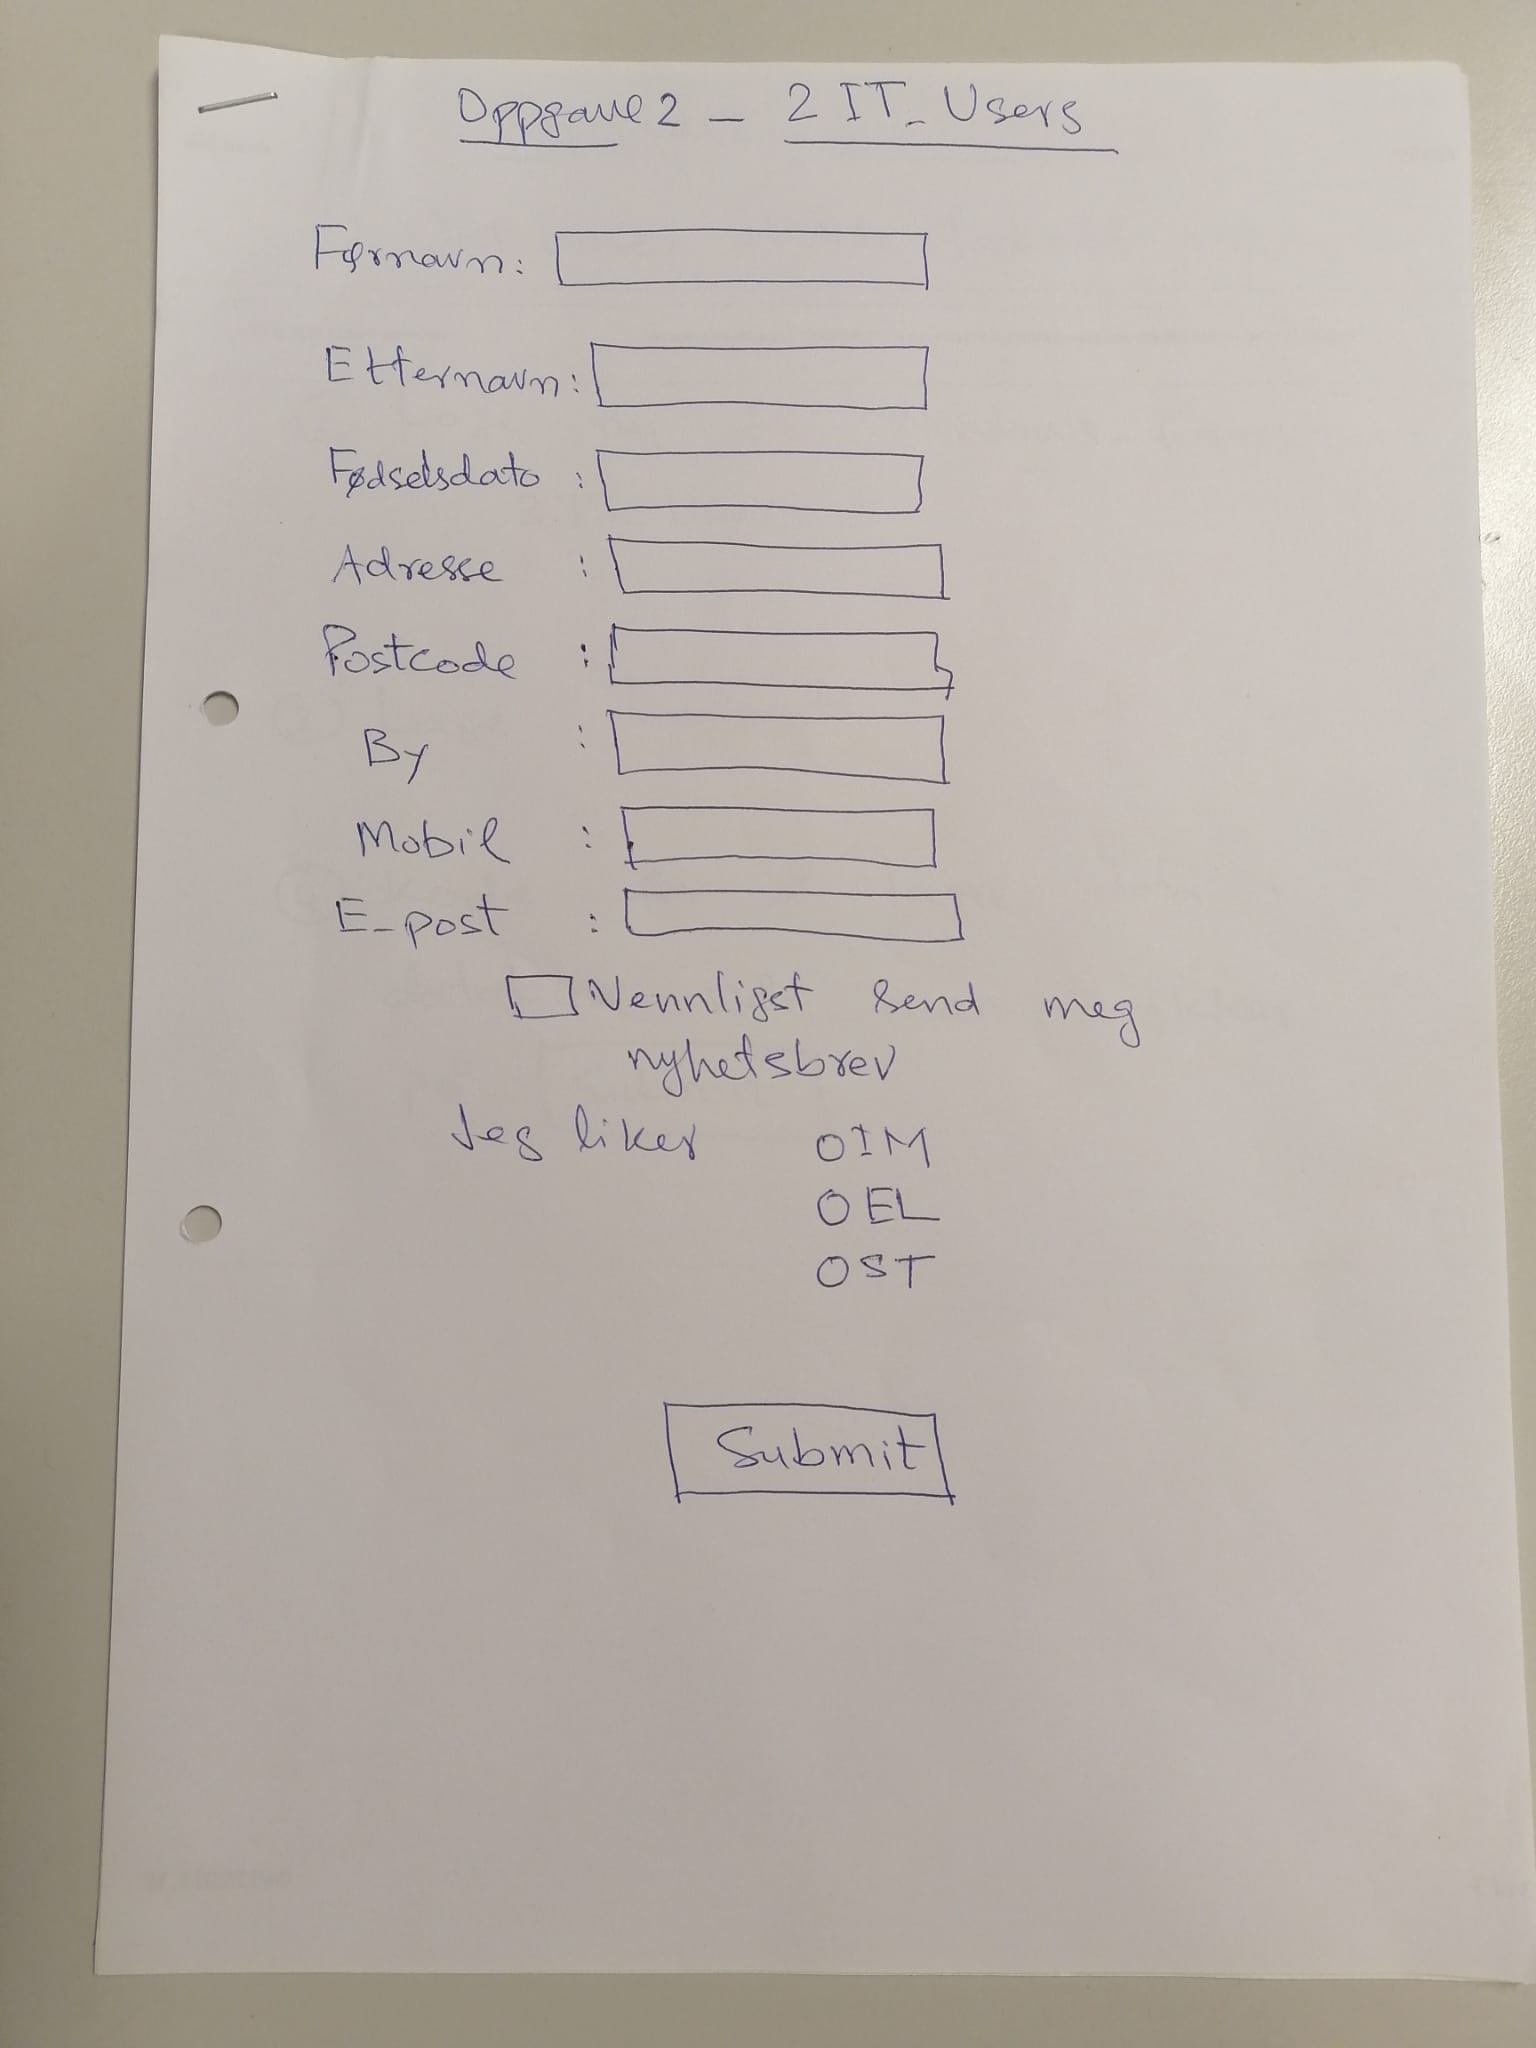 Oppgave 2 - 2 IT_Users
Førnavn:
Etternavn:
Fødselsdato :
Adresse :
Postcode :
By :
Mobil :
E-post :
Vennligst send meg
nyhetsbrev
Jeg liker O IM
O EL
O ST
Submit